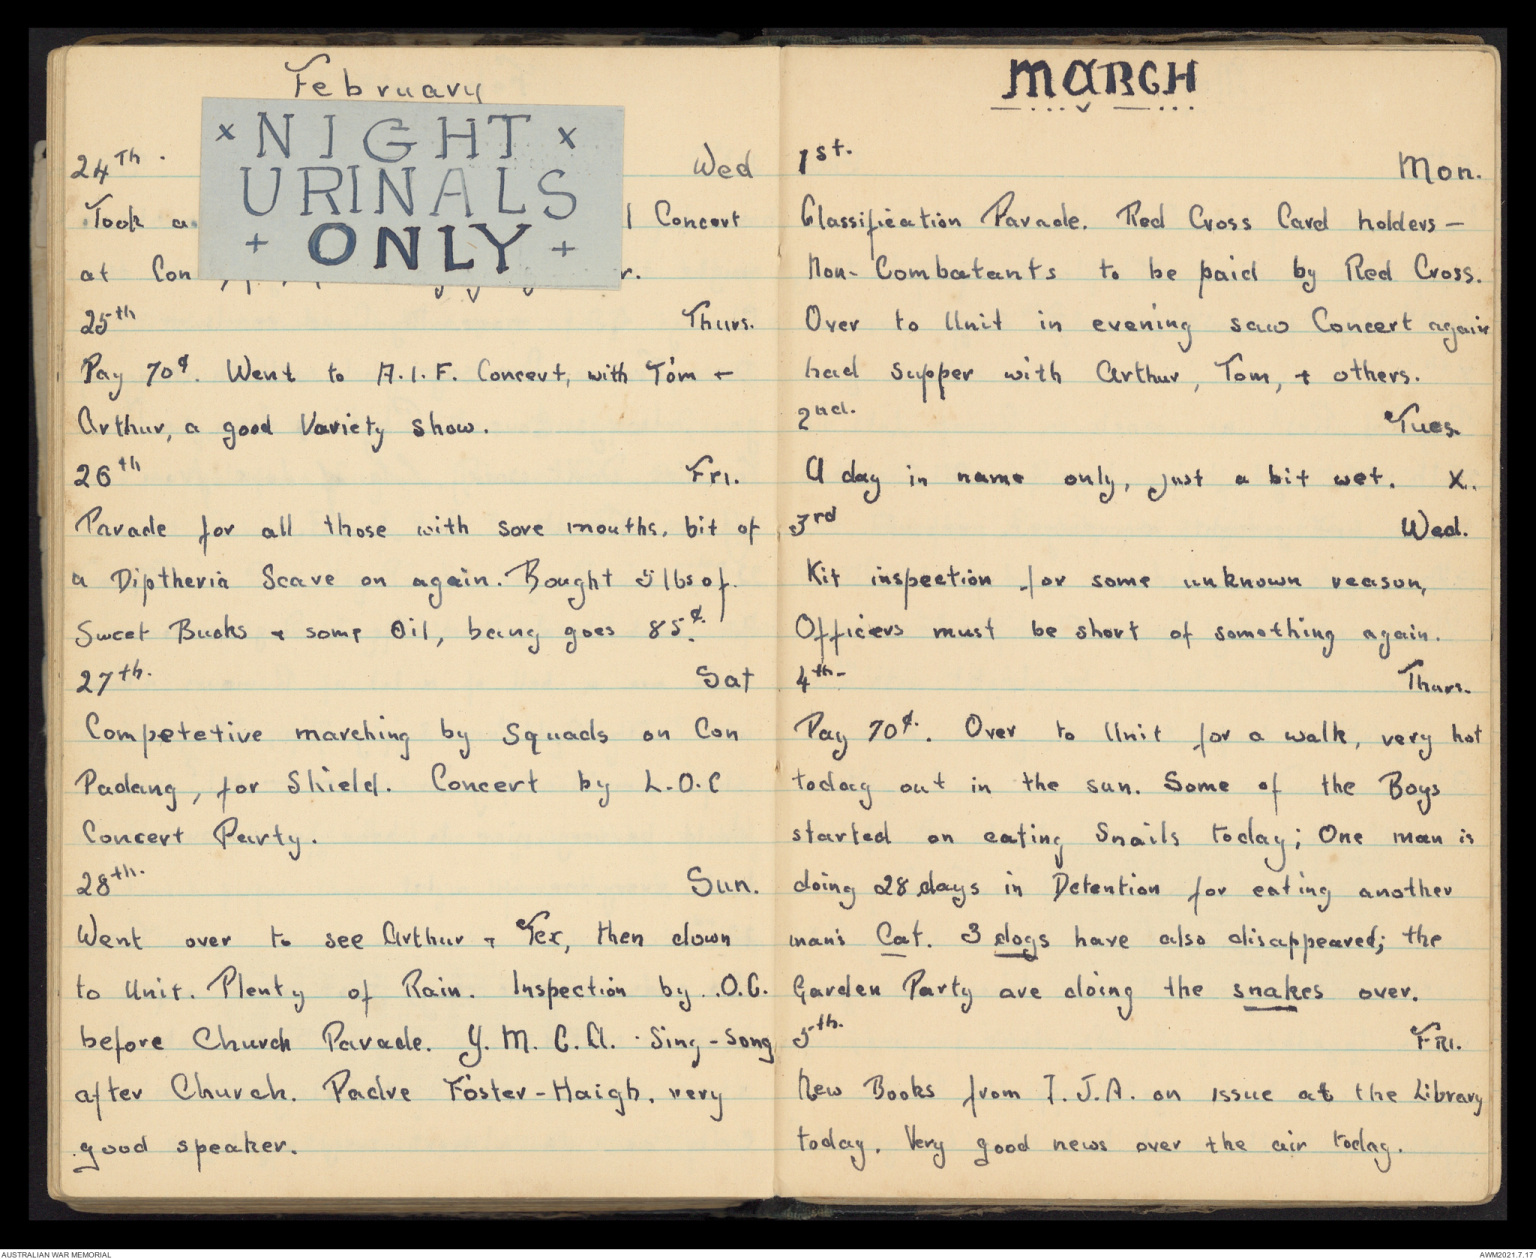 February
× NIGHT ×
URINALS
+ ONLY +
24Th. Wed
Took a Concert
at Con r.
25th Thurs.
Pay 70¢. Went to A.I.F. Concert, with Tom +
Arthur, a good Variety show.
26th Fri.
Parade for all those with sore mouths, bit of
a Diptheria Scare on again. Bought 5 lbs of
Sweet Bucks + some Oil, bang goes 85¢.
27th. Sat
Competetive marching by Squads on Con
Padang, for Shield. Concert by L.O.C
Concert Party.
28th. Sun.
Went over to see Arthur + Tex, then down
to Unit. Plenty of Rain. Inspection by .O.C.
before Church Parade. Y.M.C.A. Sing-Song
after Church. Padre Foster-Haigh, very
good speaker.
MARCH
1st. Mon.
Classification Parade. Red Cross Card holders –
Non-Combatants to be paid by Red Cross.
Over to Unit in evening saw Concert again
had supper with Arthur, Tom, + others.
2nd. Tues.
A day in name only, just a bit wet. X.
3rd Wed.
Kit inspection for some unknown reason,
Officers must be short of something again.
4th- Thurs.
Pay 70¢. Over to Unit for a walk, very hot
today out in the sun. Some of the Boys
started on eating Snails today; One man is
doing 28 days in Detention for eating another
man's Cat. 3 dogs have also disappeared; the
Garden Party are doing the snakes over.
5th. FRI.
New Books from I.J.A. on issue at the Library
today. Very good news over the air today.
AUSTRALIAN WAR MEMORIAL
AWM2021.7.17